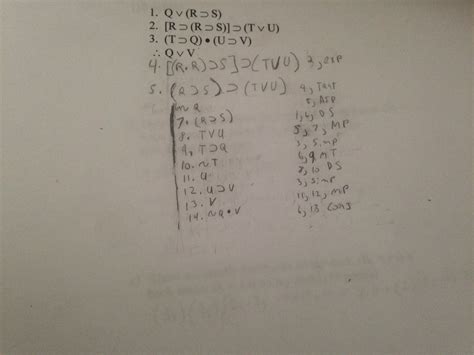 1. Q ∨ (R ⊃ S)
2. [R ⊃ (R ⊃ S)] ⊃ (T ∨ U)
3. (T ⊃ Q) • (U ⊃ V)
∴ Q ∨ V
4. [(R • R) ⊃ S] ⊃ (T ∨ U) 2, exp
5. (R ⊃ S) ⊃ (T ∨ U) 4, Taut
~Q 5, ASP
7. (R ⊃ S) 1, 6, DS
8. T ∨ U 5, 7, MP
9. T ⊃ Q 3, simp
10. ~T 6, 9 MT
11. U 8, 10 DS
12. U ⊃ V 3, simp
13. V 11, 12, MP
14. ~Q • V 6, 13 Conj